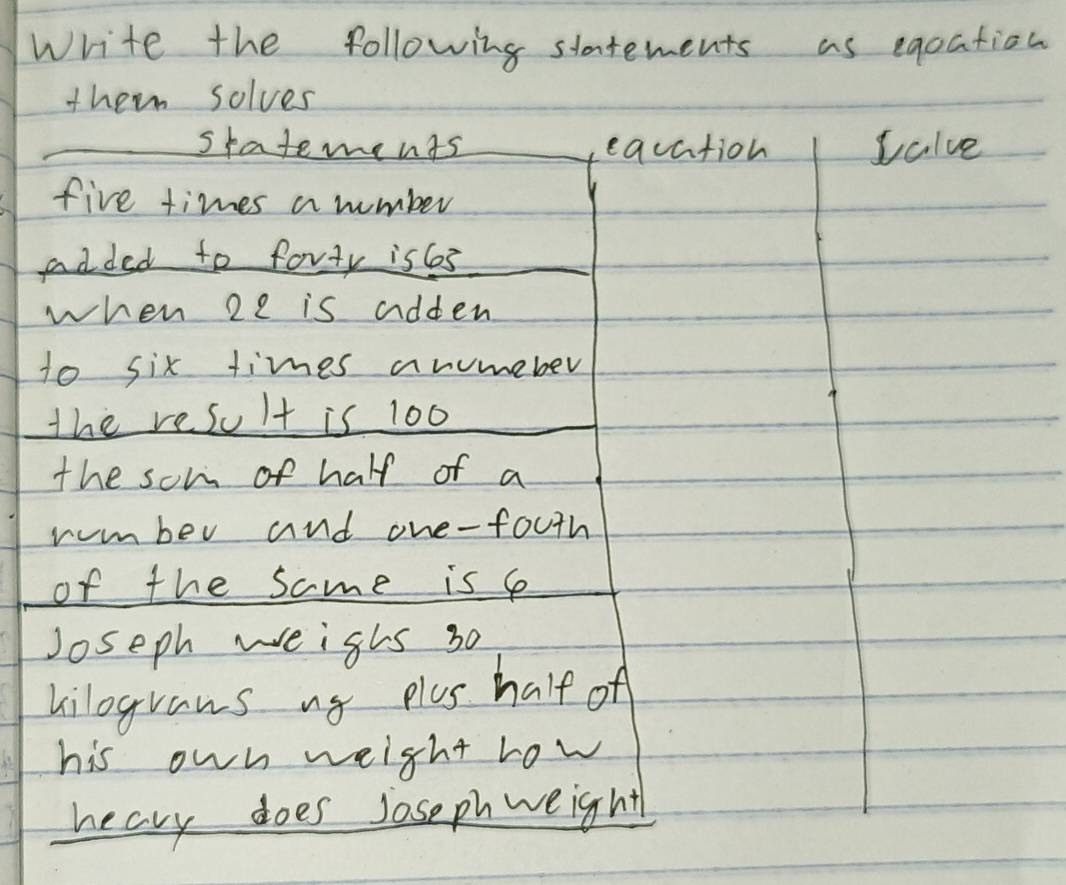 Write the following statements as eqoation
them solves
statements eqvation Value
five times a number
added to forty is 65
when 22 is adden
to six times a numeber
the result is 100
the som of half of a
number and one-fouth
of the same is 6
Joseph weighs 30
kilograms ng plus half of
his own weight how
heavy does Joseph weight